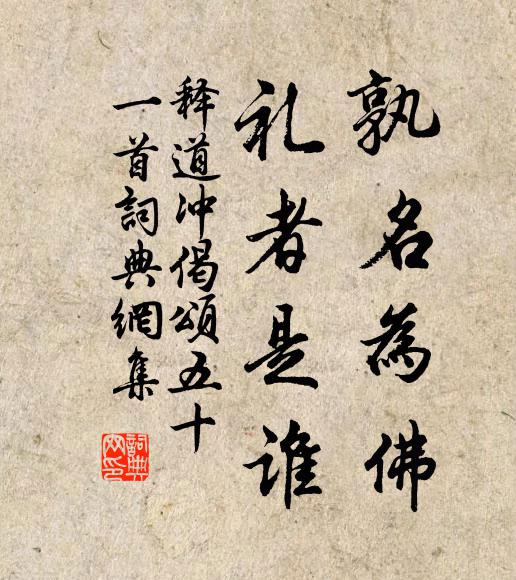 孰名為佛
礼者是誰
释道冲偈頌五十
一首詞典網集
詞典网印